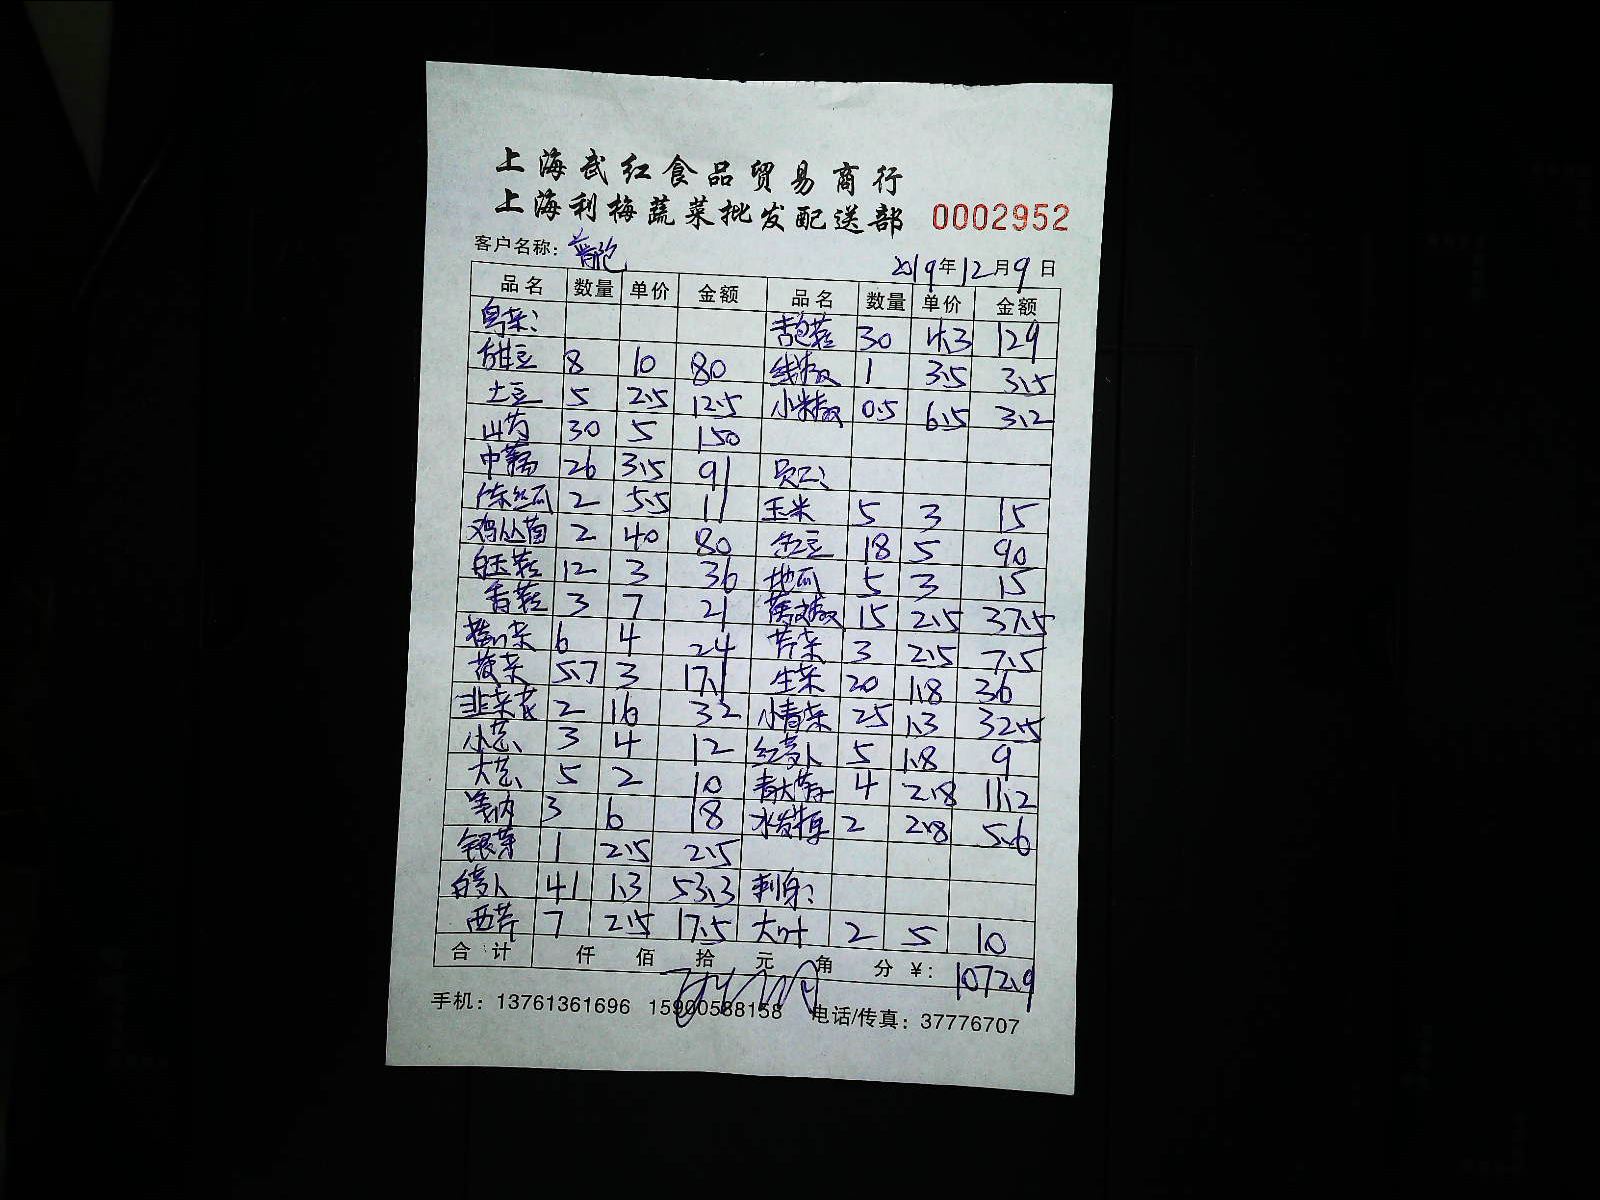 上海武红食品贸易商行
上海利梅蔬菜批发配送部 0002952
客户名称：
2019年12月9日
品名 数量 单价 金额 品名 数量 单价 金额
粤菜： 杏鲍菇 30 4.3 129
甜豆 8 10 80 线椒 1 3.5 3.5
土豆 5 2.5 12.5 小米椒 0.5 6.5 3.2
山药 30 5 150
中藕 26 3.5 91 员工：
丝瓜 2 5.5 11 玉米 5 3 15
鸡丛菌 2 40 80 豆 18 5 90
白玉菇 12 3 36 地瓜 5 3 15
香菇 3 7 21 椒 15 2.5 37.5
菜 6 4 24 芹菜 3 2.5 7.5
菠菜 5.7 3 17.1 生菜 20 1.8 36
韭菜花 2 16 32 小青菜 25 1.3 32.5
小葱 3 4 12 红萝卜 5 1.8 9
大葱 5 2 10 青大 4 2.8 11.2
3 6 18 水发 2 2.8 5.6
银芽 1 2.5 2.5
白萝卜 41 1.3 53.3 刺身：
西芹 7 2.5 17.5 大叶 2 5 10
合计 仟 佰 拾 元 角 分 ¥：1072.9
手机：13761361696 15900588158 电话/传真：37776707